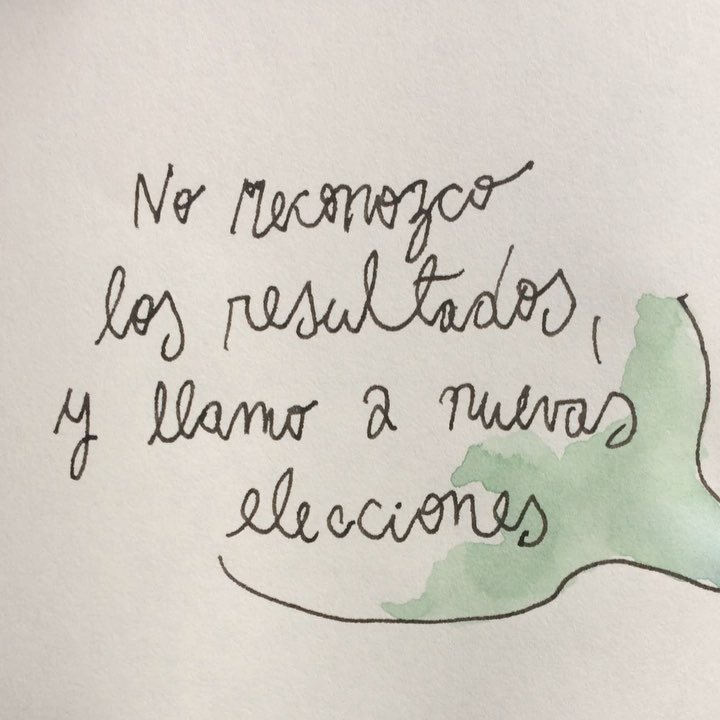 No reconozco
los resultados,
y llamo a nuevas
elecciones